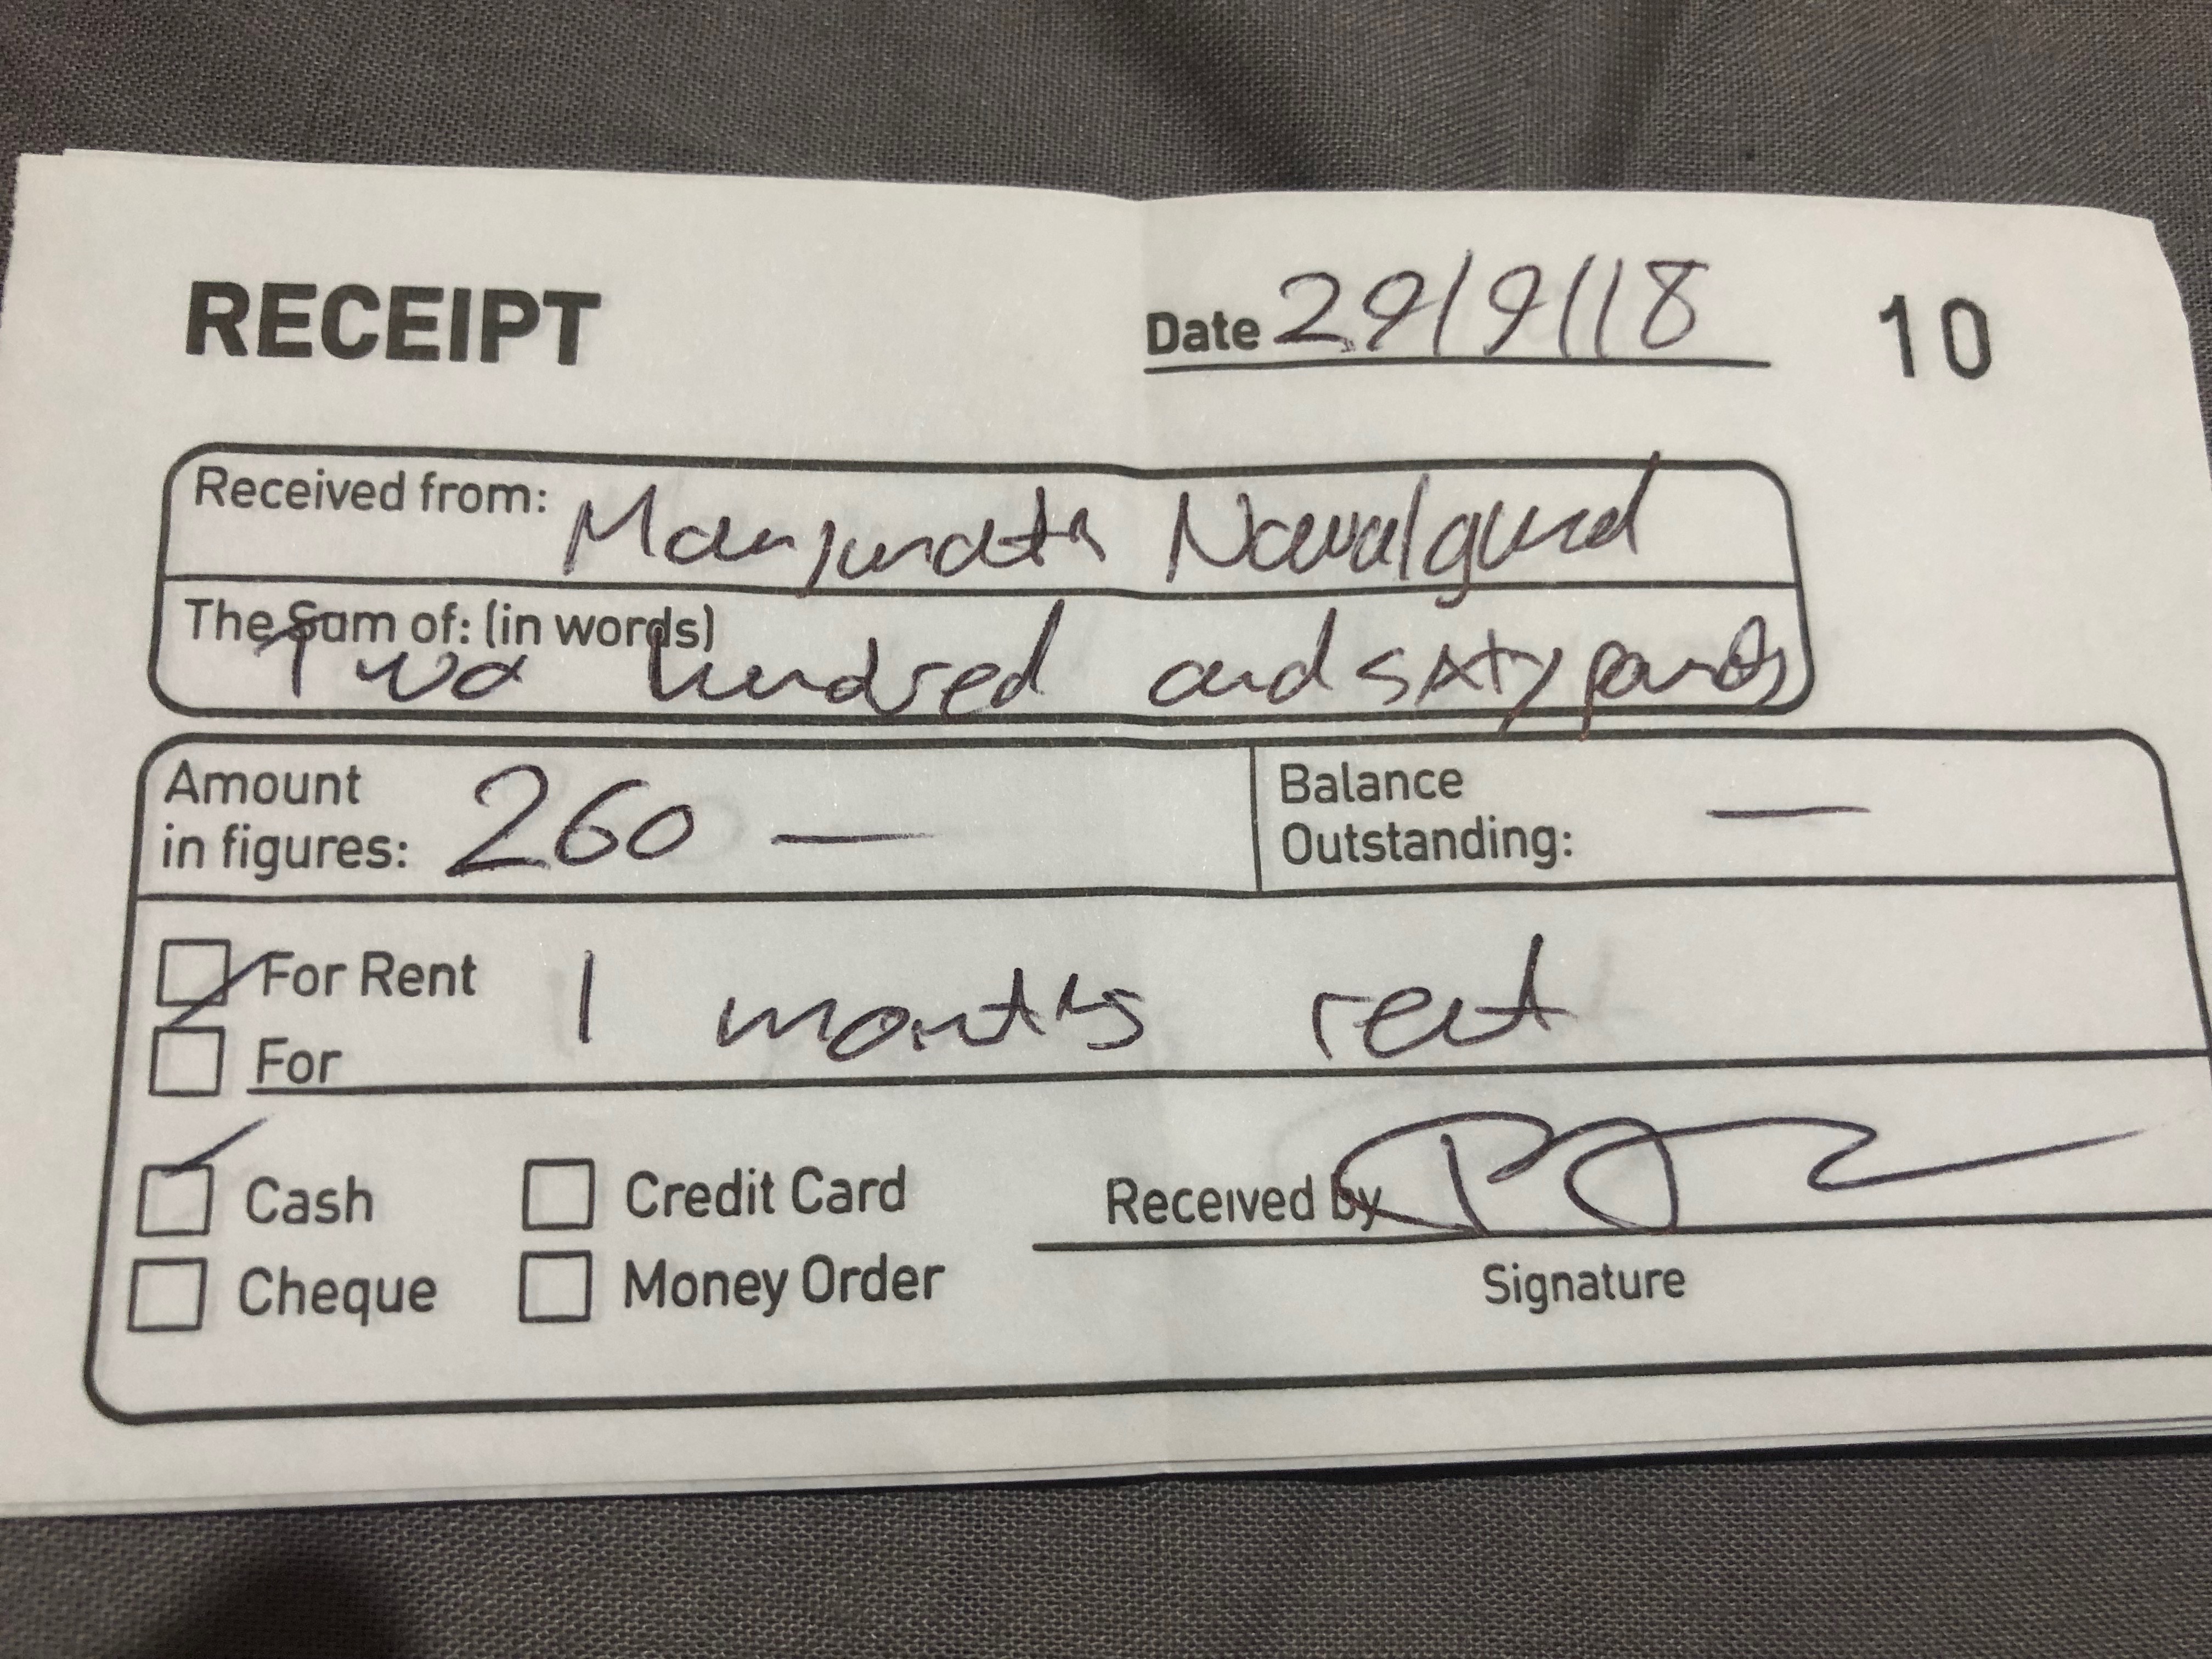 RECEIPT Date 29/9/18 10
Received from: Manjunath Navalgund
The Sum of: (in words)
Two hundred and sixty pounds
Amount in figures: 260 — Balance Outstanding: —
For Rent 1 months rent
For
Cash Credit Card Received by
Cheque Money Order Signature